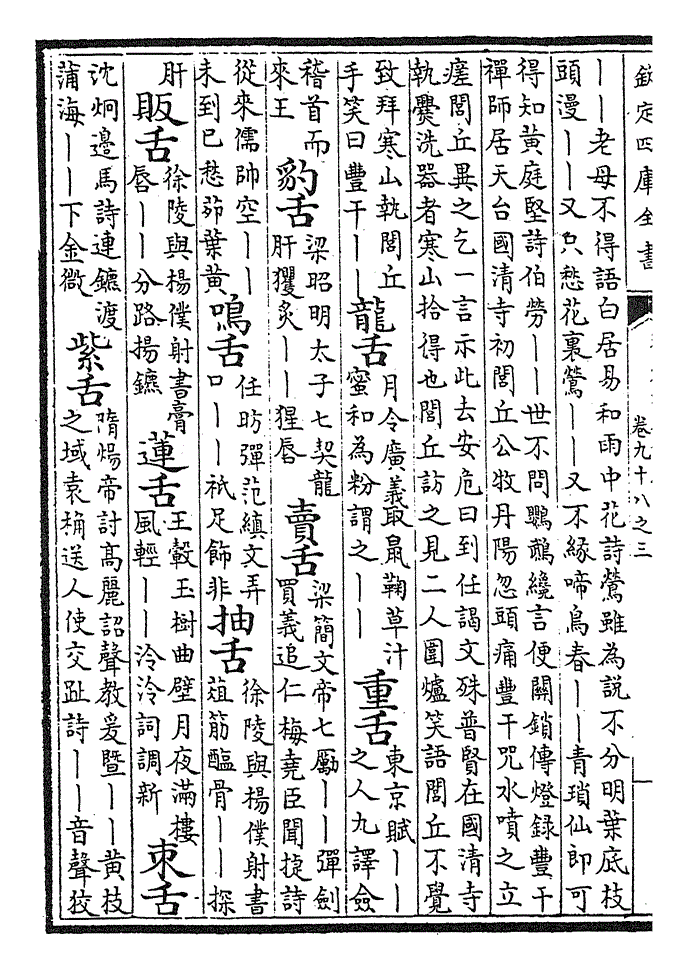 欽定四庫全書
卷九十八之三
——老母不得語白居易和雨中花詩鶯雖為說不分明葉底枝
頭漫——又只愁花裏鶯——又不緣啼鳥春——青瑣仙郎可
得知黃庭堅詩伯勞——世不問鸚鵡纔言便關鎖傳燈錄豐干
禪師居天台國清寺初閭丘公牧丹陽忽頭痛豐干咒水噴之立
瘥閭丘異之乞一言示此去安危曰到任謁文殊普賢在國清寺
執爨洗器者寒山拾得也閭丘訪之見二人圍爐笑語閭丘不覺
致拜寒山執閭丘
手笑曰豐干——
龍舌
月令廣義取鼠鞠草汁
蜜和為粉謂之——
重舌
東京賦——
之人九譯僉
稽首而
來王
豹舌
梁昭明太子七契龍
肝玃炙——猩唇
賣舌
梁簡文帝七勵——彈劍
買義追仁梅堯臣聞捷詩
從來儒帥空——
未到已愁茆葉黃
鳴舌
任昉彈范縝文弄
口——祇足飾非
抽舌
徐陵與楊僕射書
葅筋醢骨——探
肝
販舌
徐陵與楊僕射書膏
唇——分路揚鑣
蓮舌
王轂玉樹曲璧月夜滿樓
風輕——泠泠詞調新
束舌
沈炯邊馬詩連鑣渡
蒲海——下金微
紫舌
隋煬帝討高麗詔聲教爰暨——黃枝
之域袁桷送人使交趾詩——音聲狡